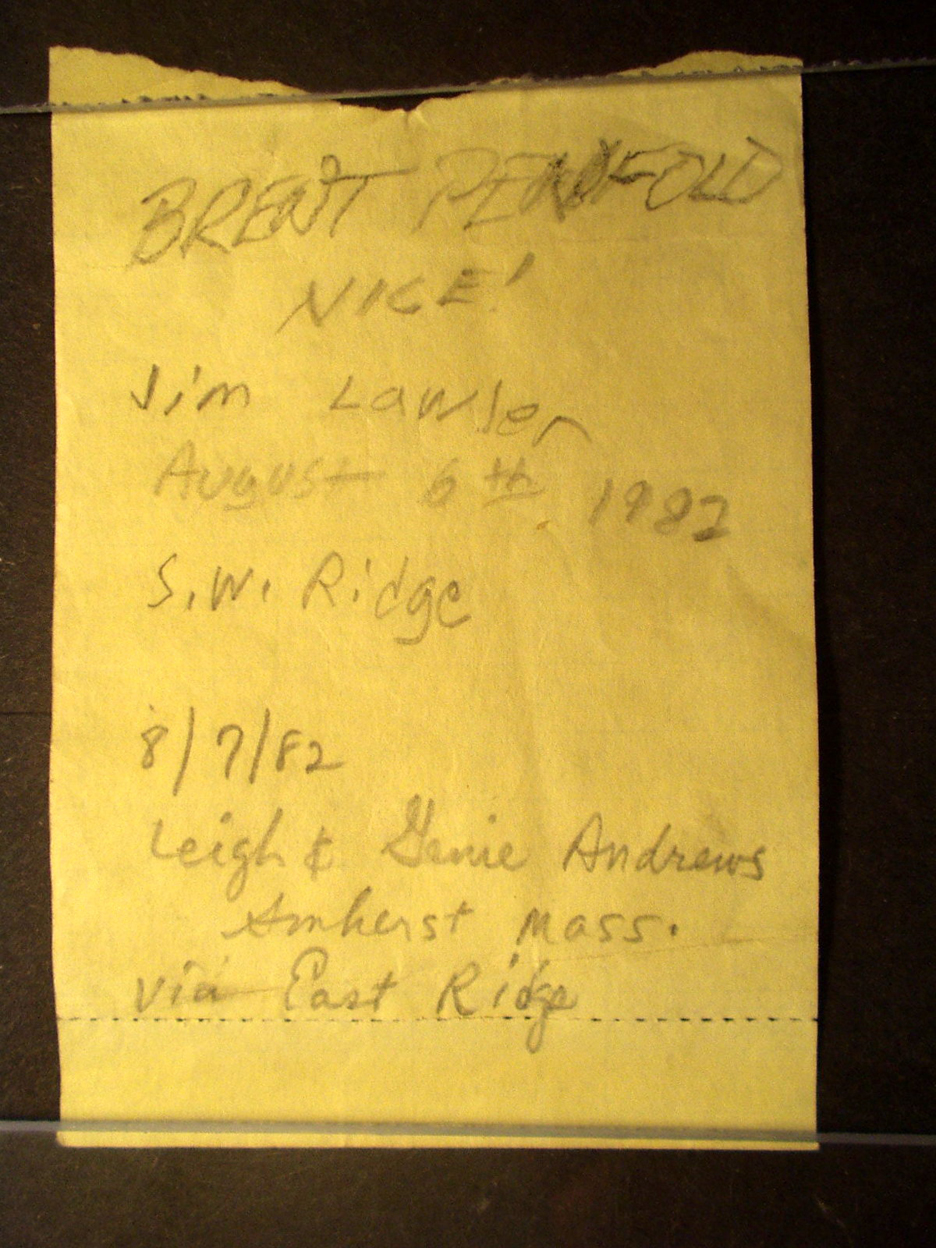 BRENT PENFOLD
NICE!
Jim Lawler
August 6th, 1982
S.W. Ridge
8/7/82
Leigh & Genie Andrews
Amherst Mass.
via East Ridge